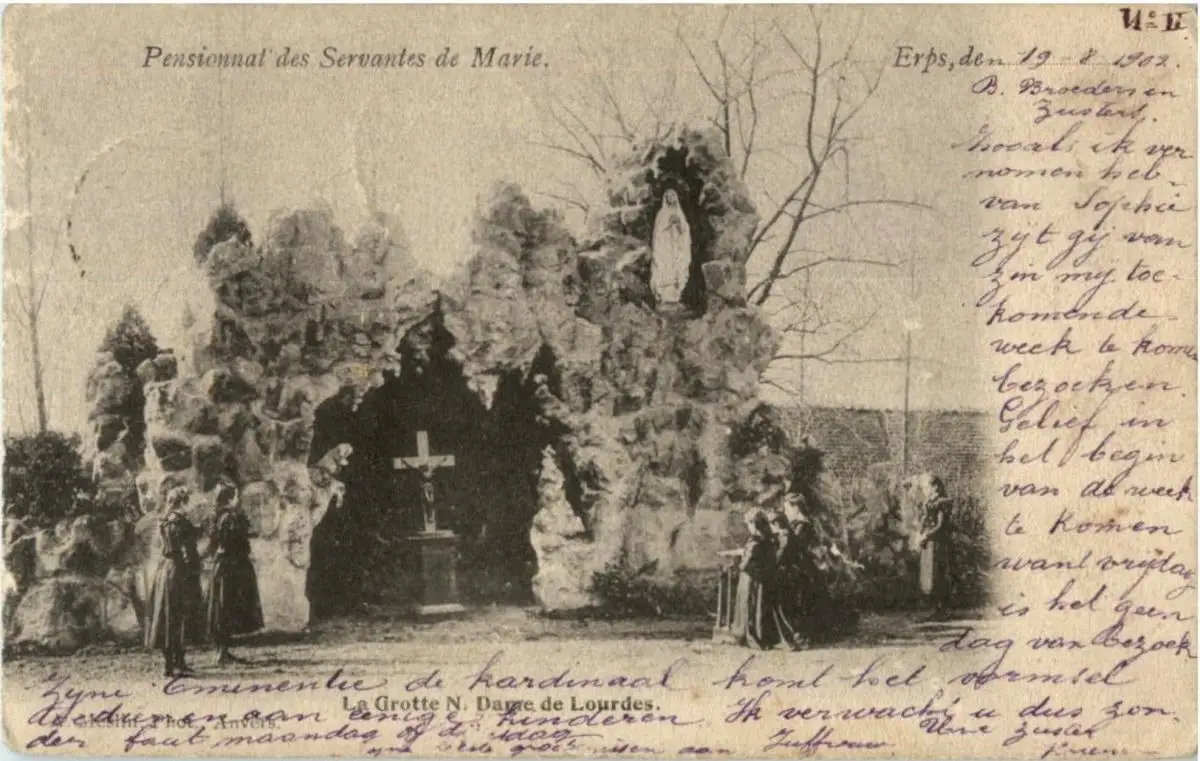 Pensionnat des Servantes de Marie.
Erps, den 19-8 1902.
B. Broeders en
Zusters.
Zooals ik ver
nomen heb
van Sophie
zijt gij van
zin mij toe-
komende
week te kome
bezoeken.
Gelief in
het begin
van de week
te komen
want vrijdag
is het geen
dag van bezoek
Zijne Eminentie de kardinaal komt het vormsel
La Grotte N. Dame de Lourdes.
aan eenige kinderen. Ik verwacht u dus zon-
Phot. Anvers.
der faut maandag of
aan Juffrouw
Uwe Zuster